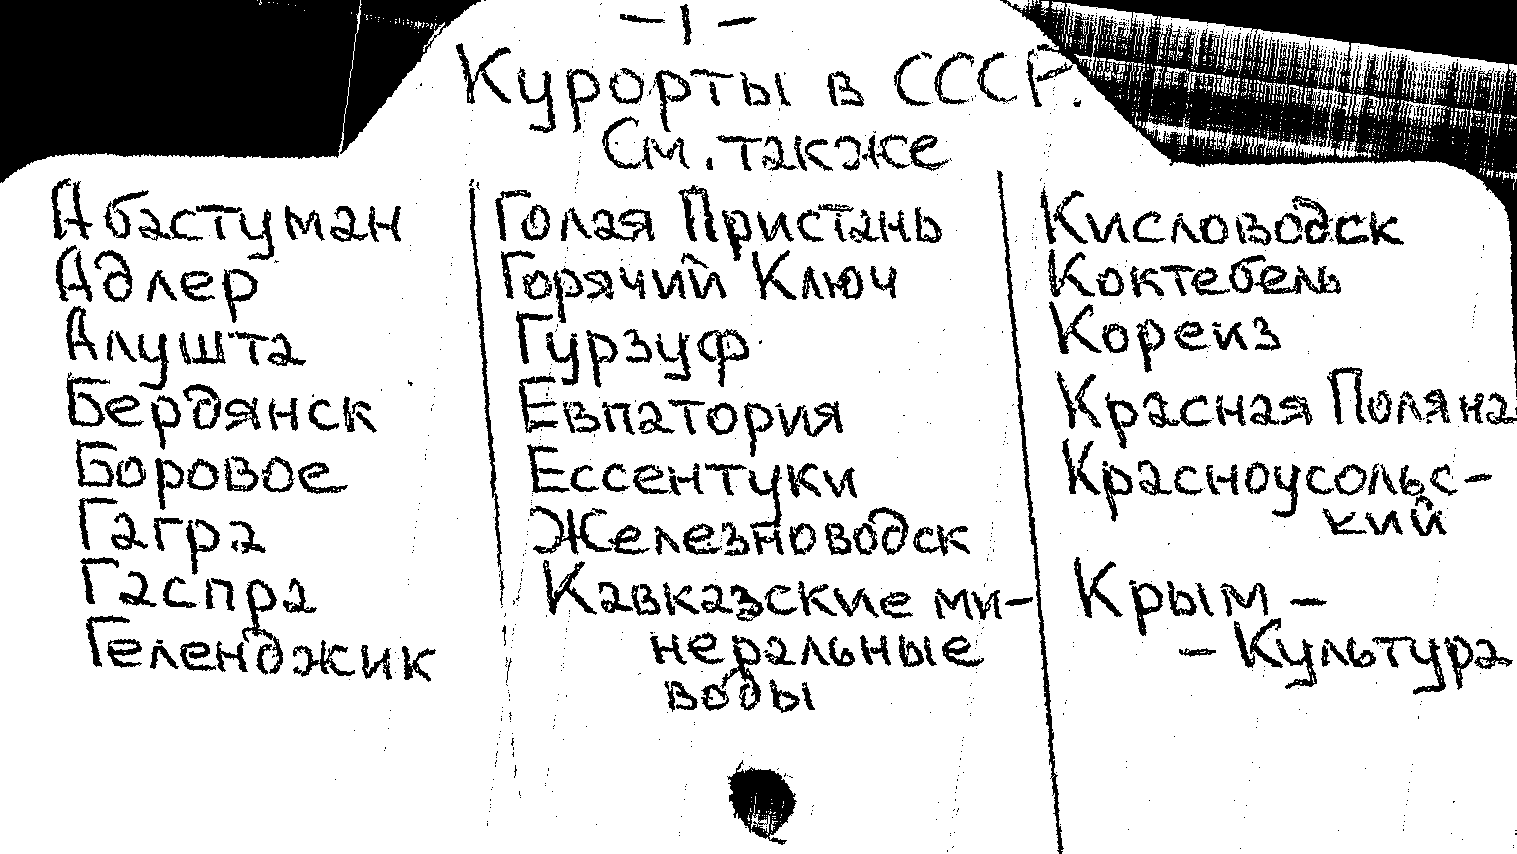 – 1 –
Курорты в СССР.
См. также
Абастуман
Адлер
Алушта
Бердянск
Боровое
Гагра
Гаспра
Геленджик
Голая Пристань
Горячий Ключ
Гурзуф
Евпатория
Ессентуки
Железноводск
Кавказские ми-
неральные
воды
Кисловодск
Коктебель
Кореиз
Красная Поляна
Красноусольс-
кий
Крым –
– Культура